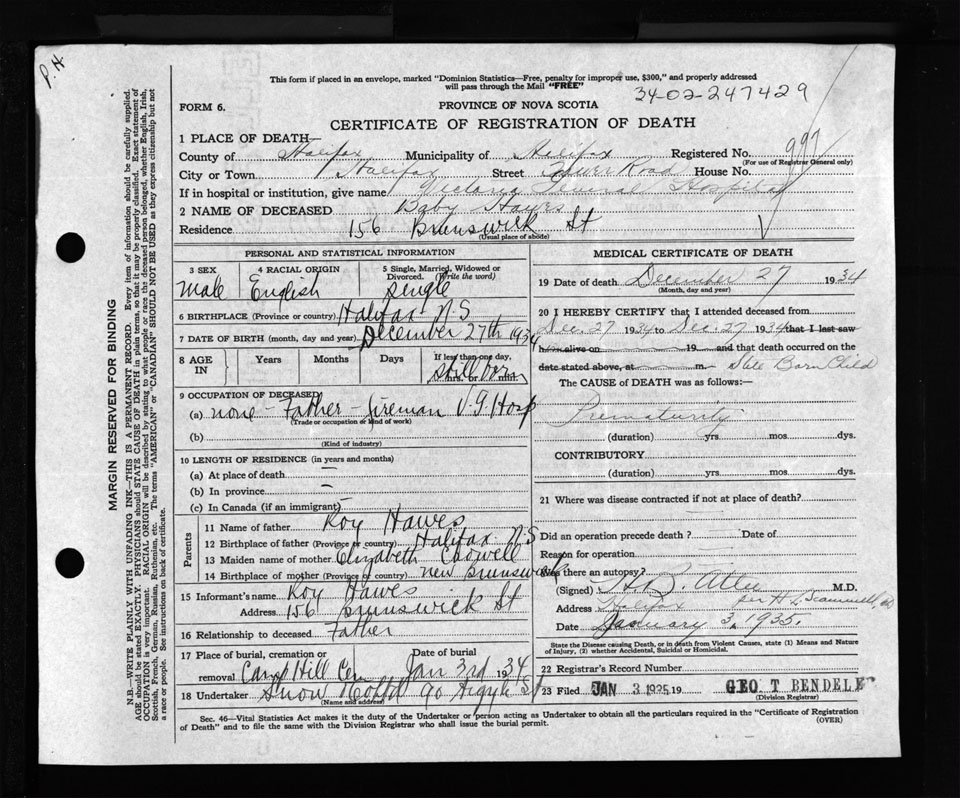 P.H
This form if placed in an envelope, marked "Dominion Statistics—Free, penalty for improper use, $300," and properly addressed
will pass through the Mail "FREE"
34-02-247429
FORM 6.
PROVINCE OF NOVA SCOTIA
CERTIFICATE OF REGISTRATION OF DEATH
1 PLACE OF DEATH—
County of Halifax Municipality of Halifax Registered No. 997
(For use of Registrar General only)
City or Town Halifax Street Tower Road House No.
If in hospital or institution, give name Victoria General Hospital
2 NAME OF DECEASED Baby Hawes
Residence 156 Brunswick St
(Usual place of abode)
PERSONAL AND STATISTICAL INFORMATION
3 SEX 4 RACIAL ORIGIN 5 Single, Married, Widowed or Divorced. (Write the word)
Male English Single
6 BIRTHPLACE (Province or country) Halifax N.S
7 DATE OF BIRTH (month, day and year) December 27th 1934
8 AGE IN Years Months Days If less than one day,
still born
9 OCCUPATION OF DECEASED
(a) none - Father - fireman V.G. Hosp
(Trade or occupation or kind of work)
(b)
(Kind of industry)
10 LENGTH OF RESIDENCE (in years and months)
(a) At place of death —
(b) In province —
(c) In Canada (if an immigrant) —
Parents
11 Name of father Roy Hawes
12 Birthplace of father (Province or country) Halifax N.S
13 Maiden name of mother Elizabeth Crowell
14 Birthplace of mother (Province or country) New Brunswick
15 Informant's name Roy Hawes
Address 156 Brunswick St
16 Relationship to deceased Father
17 Place of burial, cremation or removal Camp Hill Cem Date of burial Jan 3rd 1934
18 Undertaker Snow & Co Ltd 90 Argyle St
(Name and address)
MEDICAL CERTIFICATE OF DEATH
19 Date of death December 27 1934
(Month, day and year)
20 I HEREBY CERTIFY that I attended deceased from
Dec. 27 1934 to Dec. 27 1934 that I last saw
h alive on 19 and that death occurred on the
date stated above, at m. Still Born Child
The CAUSE OF DEATH was as follows:—
Prematurity
(duration) yrs. mos. dys.
CONTRIBUTORY
(duration) yrs. mos. dys.
21 Where was disease contracted if not at place of death?
Did an operation precede death? Date of
Reason for operation
Was there an autopsy?
(Signed) M.D.
for H.L. Scammell
Address Halifax
Date January 3, 1935.
State the Disease causing Death, or in death from Violent Causes, state (1) Means and Nature
of Injury, (2) whether Accidental, Suicidal or Homicidal.
22 Registrar's Record Number
23 Filed JAN 3 1935 19 GEO. T BENDELE
(Division Registrar)
Sec. 46—Vital Statistics Act makes it the duty of the Undertaker or person acting as Undertaker to obtain all the particulars required in the "Certificate of Registration
of Death" and to file the same with the Division Registrar who shall issue the burial permit. (OVER)
MARGIN RESERVED FOR BINDING
N.B.—WRITE PLAINLY WITH UNFADING INK—THIS IS A PERMANENT RECORD. Every item of information should be carefully supplied.
AGE should be stated EXACTLY. PHYSICIANS should STATE CAUSE OF DEATH in plain terms, so that it may be properly classified. Exact statement of
OCCUPATION is very important. RACIAL ORIGIN will be described by stating to what people or race the deceased person belonged, whether English, Irish,
Scottish, French, German, Russian, Ruthenian, etc. The terms "AMERICAN" or "CANADIAN" SHOULD NOT BE USED as they express citizenship but not
a race or people. See instructions on back of certificate.